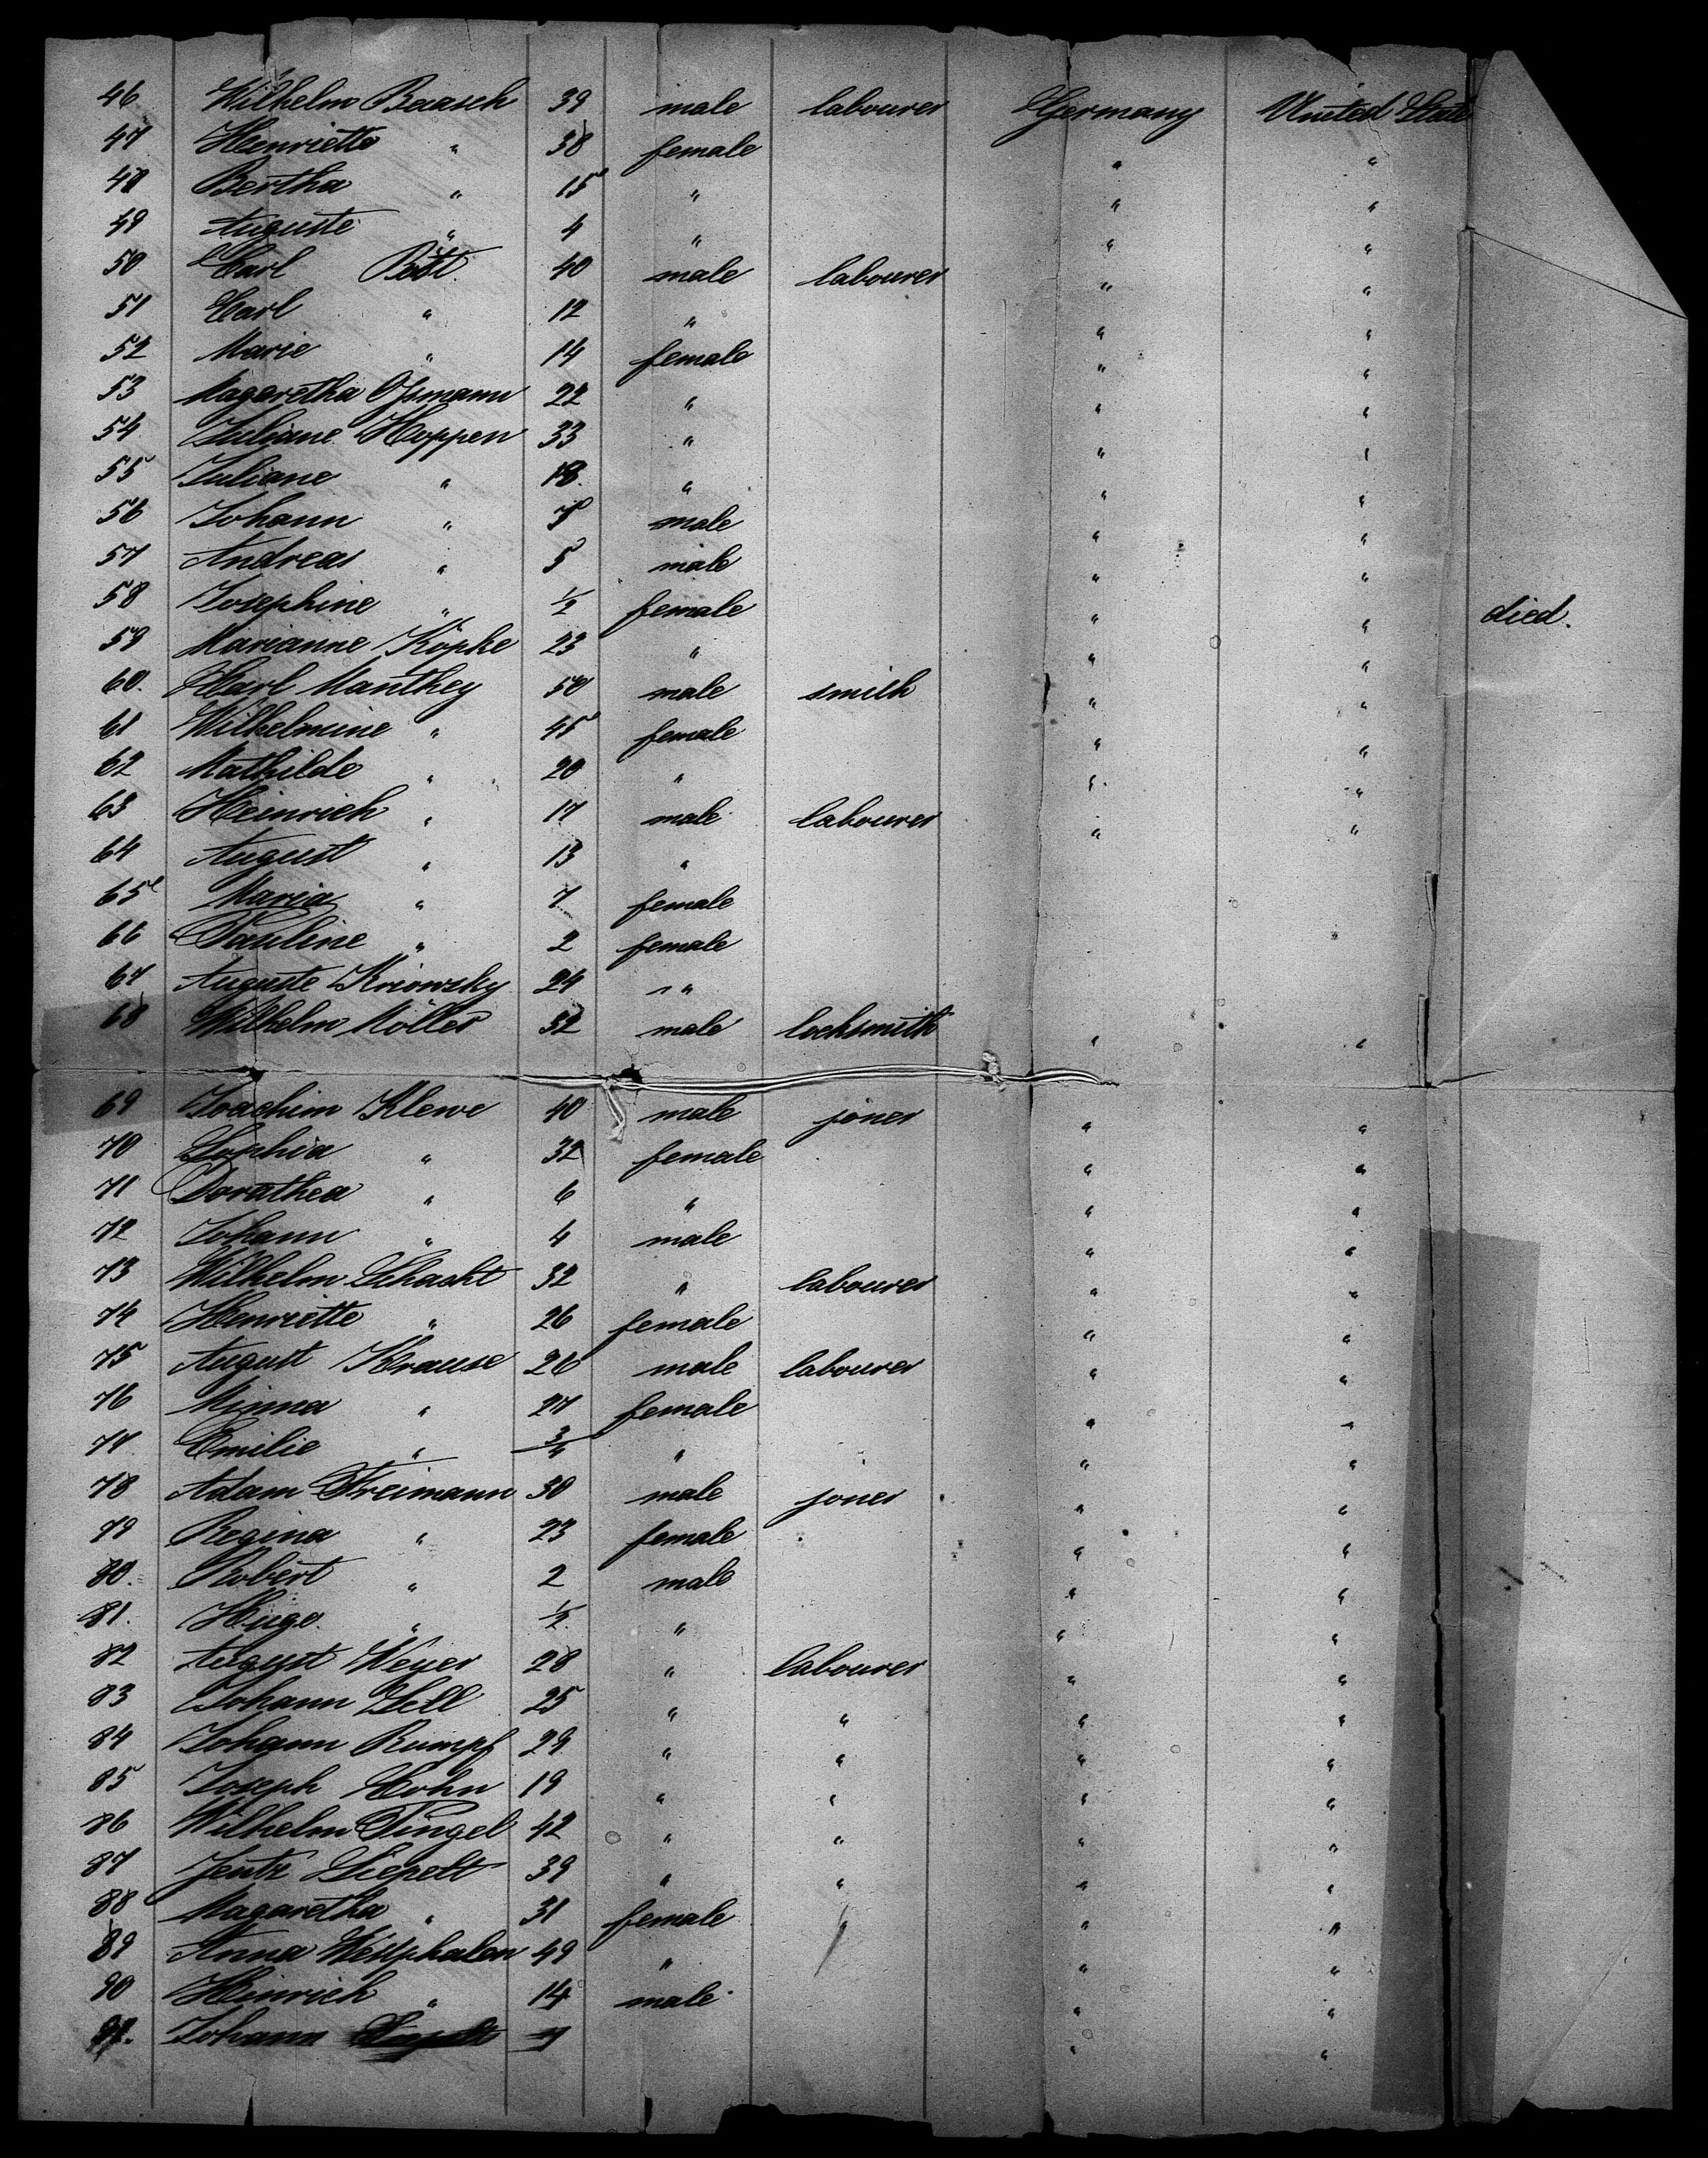 46 Wilhelm Baasch 39 male labourer Germany United State
47 Henriette " 38 female " "
48 Bertha " 15 " " "
49 Auguste " 4 " " "
50 Carl 40 male labourer " "
51 Carl " 12 " " "
52 Marie " 14 female " "
53 Magaretha Ossmann 22 " " "
54 Juliane Hoppen 33 " " "
55 Juliane " " " "
56 Johann " male " "
57 Andreas " 5 male " "
58 Josephine " 1/2 female " " died.
59 Marianne Köpke 23 " " "
60. Karl Manthey 50 male smith " "
61 Wilhelmine " 45 female " "
62 Mathilde " 20 " " "
63 Heinrich " 17 male labourer " "
64 August " 13 "
65 Maria " 7 female
66 Pauline " 2 female
67 Auguste 24 " "
68 Wilhelm Möller 32 male locksmith " "
69 Joachim Klewe 40 male joner " "
70 Sophia " 32 female " "
71 Dorothea " 6 " " "
72 Johann " 4 male " "
73 Wilhelm Schacht 32 " labourer " "
74 Henriette " 26 female " "
75 August Krause 26 male labourer " "
76 Minna " 27 female " "
77 Emilie " 3/4 " " "
78 Adam Freimann 30 male joner " "
79 Regina " 23 female " "
80. Robert " 2 male " "
81. Hugo. " 1/2 " " "
82 August Meyer 28 " labourer " "
83 Johann Sell 25 " " " "
84 Johann Rumpf 29 " " " "
85 Joseph Hohn 19 " " " "
86 Wilhelm Pingel 42 " " " "
87 Liepelt 39 " " " "
88 Magaretha " 31 female " " "
89 Anna Westphalen 49 " " "
90 Heinrich " 14 male " "
91. Johann " "